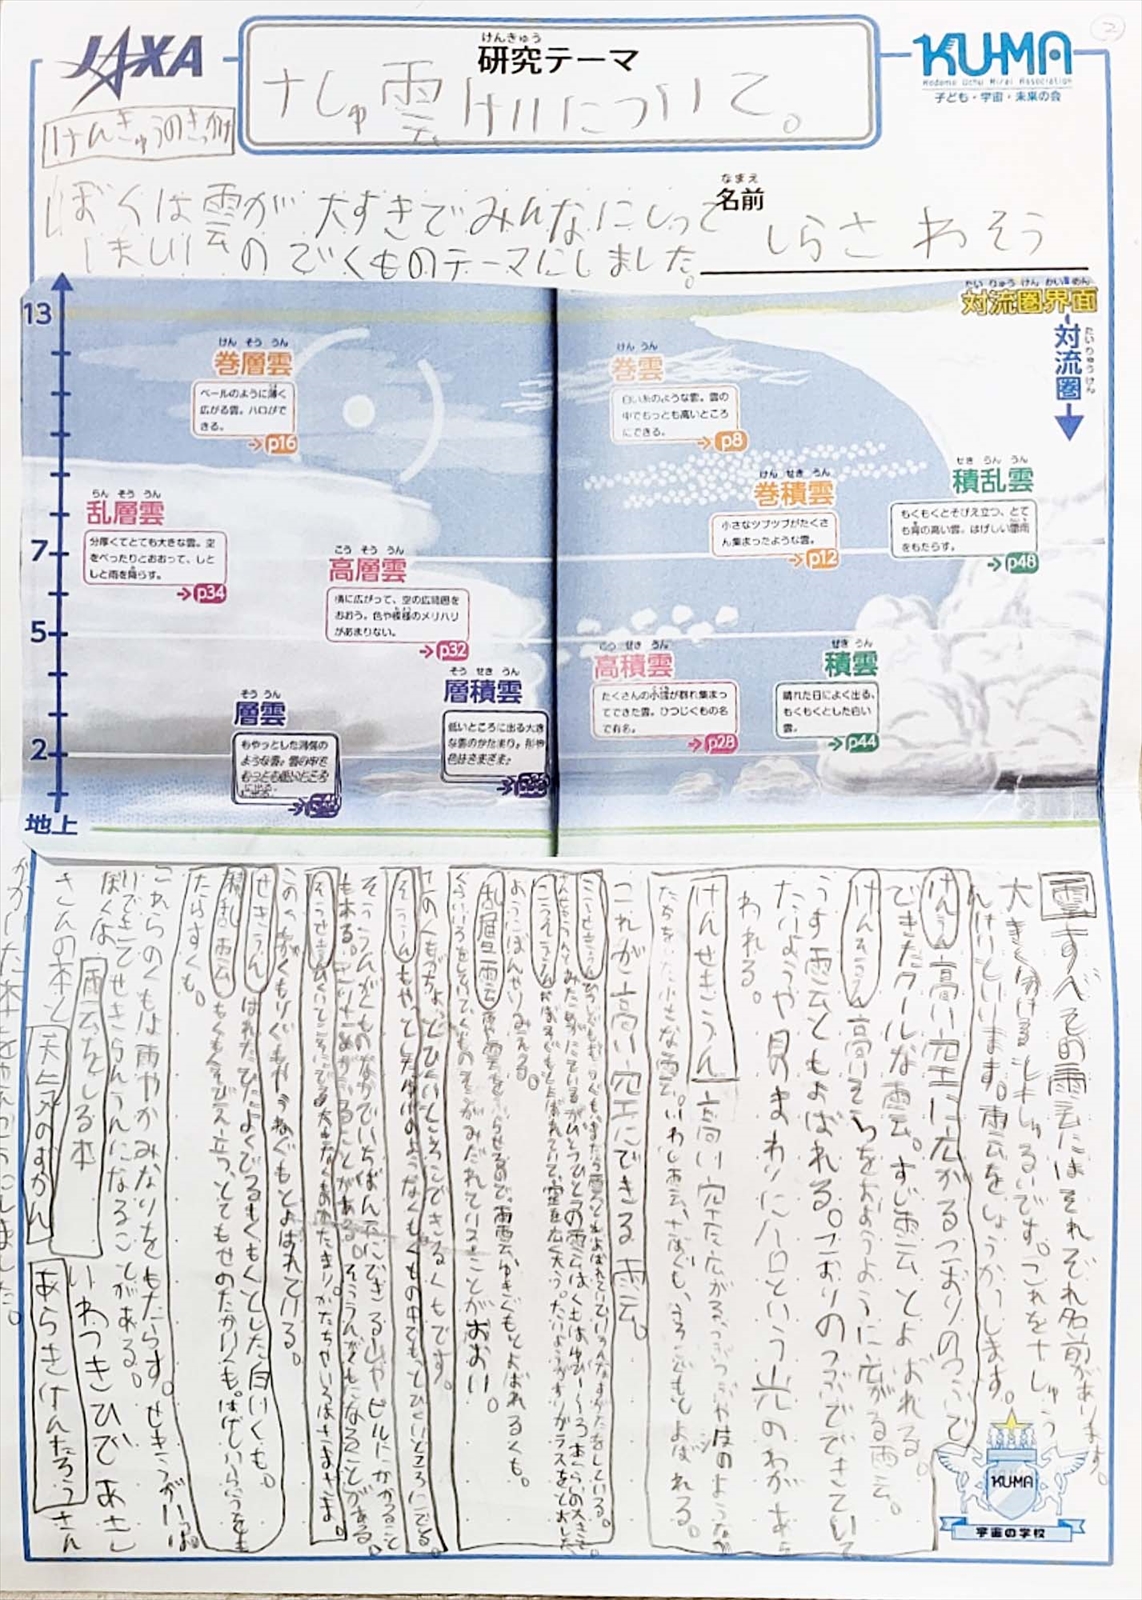 JAXA
けんきゅう
研究テーマ
十しゅ雲けいについて。
KU-MA
Kodomo Uchu Mirai Association
子ども・宇宙・未来の会
2
けんきゅうのきっかけ
ぼくは雲が大すきでみんなにしって
ほしい
のでくものテーマにしました。
なまえ
名前
しらさ わ そう
たい りゅう けん かい めん
対流圏界面
たい りゅう けん
対流圏
13
7
5
2
地上
けん そう うん
巻層雲
ベールのように薄く
広がる雲。ハロがで
きる。
→p16
けん うん
巻雲
白い糸のような雲。雲の
中でもっとも高いところ
にできる。
→p8
けん せき うん
巻積雲
小さなツブツブがたくさ
ん集まったような雲。
→p12
せき らん うん
積乱雲
もくもくとそびえ立つ、とて
も背の高い雲。はげしい雷雨
をもたらす。
→p48
らん そう うん
乱層雲
分厚くてとても大きな雲。空
をべったりとおおって、しと
しと雨を降らす。
→p34
こう そう うん
高層雲
横に広がって、空の広範囲を
おおう。色や模様のメリハリ
があまりない。
→p32
こう せき うん
高積雲
たくさんの小雲が群れ集まっ
てできた雲。ひつじぐもの名
で有名。
→p28
せき うん
積雲
晴れた日によく出る、
もくもくとした白い
雲。
→p44
そう うん
層雲
もやっとした霧のような雲。雲の中で
もっとも低いところ
に出る。
そう せき うん
層積雲
低いところに出る大き
な雲のかたまり。形や
色はさまざま。
雲すべての雲にはそれぞれ名前があります。
大きく分けると十しゅるいです。これを十しゅ
うんけいといいます。雲をしょうかいします。
けんうん高い空に広がるこおりのつぶで
できたクールな雲。すじ雲ともよばれる。
けんそううん高いそらをおおうように広がる雲。
うす雲ともよばれる。こおりのつぶでできていて
たいようや月のまわりにハロという光のわがあら
われる。
けんせきうん高い空に広がるつぶつぶやはのような
かたちをした小さな雲。いわし雲、さばぐも、うろこぐもともよばれる。
これが高い空にできる雲。
こうせきうん
こうそううん
ようにぼんやりみえる。
乱層雲雨や雪をふらせるので、雨雲、ゆきぐもともよばれるくも。
ぐらいいろをしていてくものそこがみだれていることがおおい。
十の人もがちょっとひくいところにできるくもです。
そううんもやっとしたきりのようなくもの中でもっともひくいところにでる。
そううんがくものなかでいちばん下にできる山やビルにかかること
もある。
そうせきうんひくいところにでる大きなあつまり。かたちやいろはさまざま。
このくもがくもりぐもやうねぐもとよばれている。
せきうんはれたひによくでるもくもくとした白いくも。
積乱雲もくもくそびえ立つとてもせのたかいくも。はげしいらいうをも
たらすくも。
これらのくもは雨やかみなりをもたらす。せきうんがいっぱ
いできてせきらんうんになることがある。
ぼくは雲をしる本いわつきひであき
さんの本と天気のずかんあらきけんたろうさん
がかいた本をさんこうにしました。
KU-MA
宇宙の学校